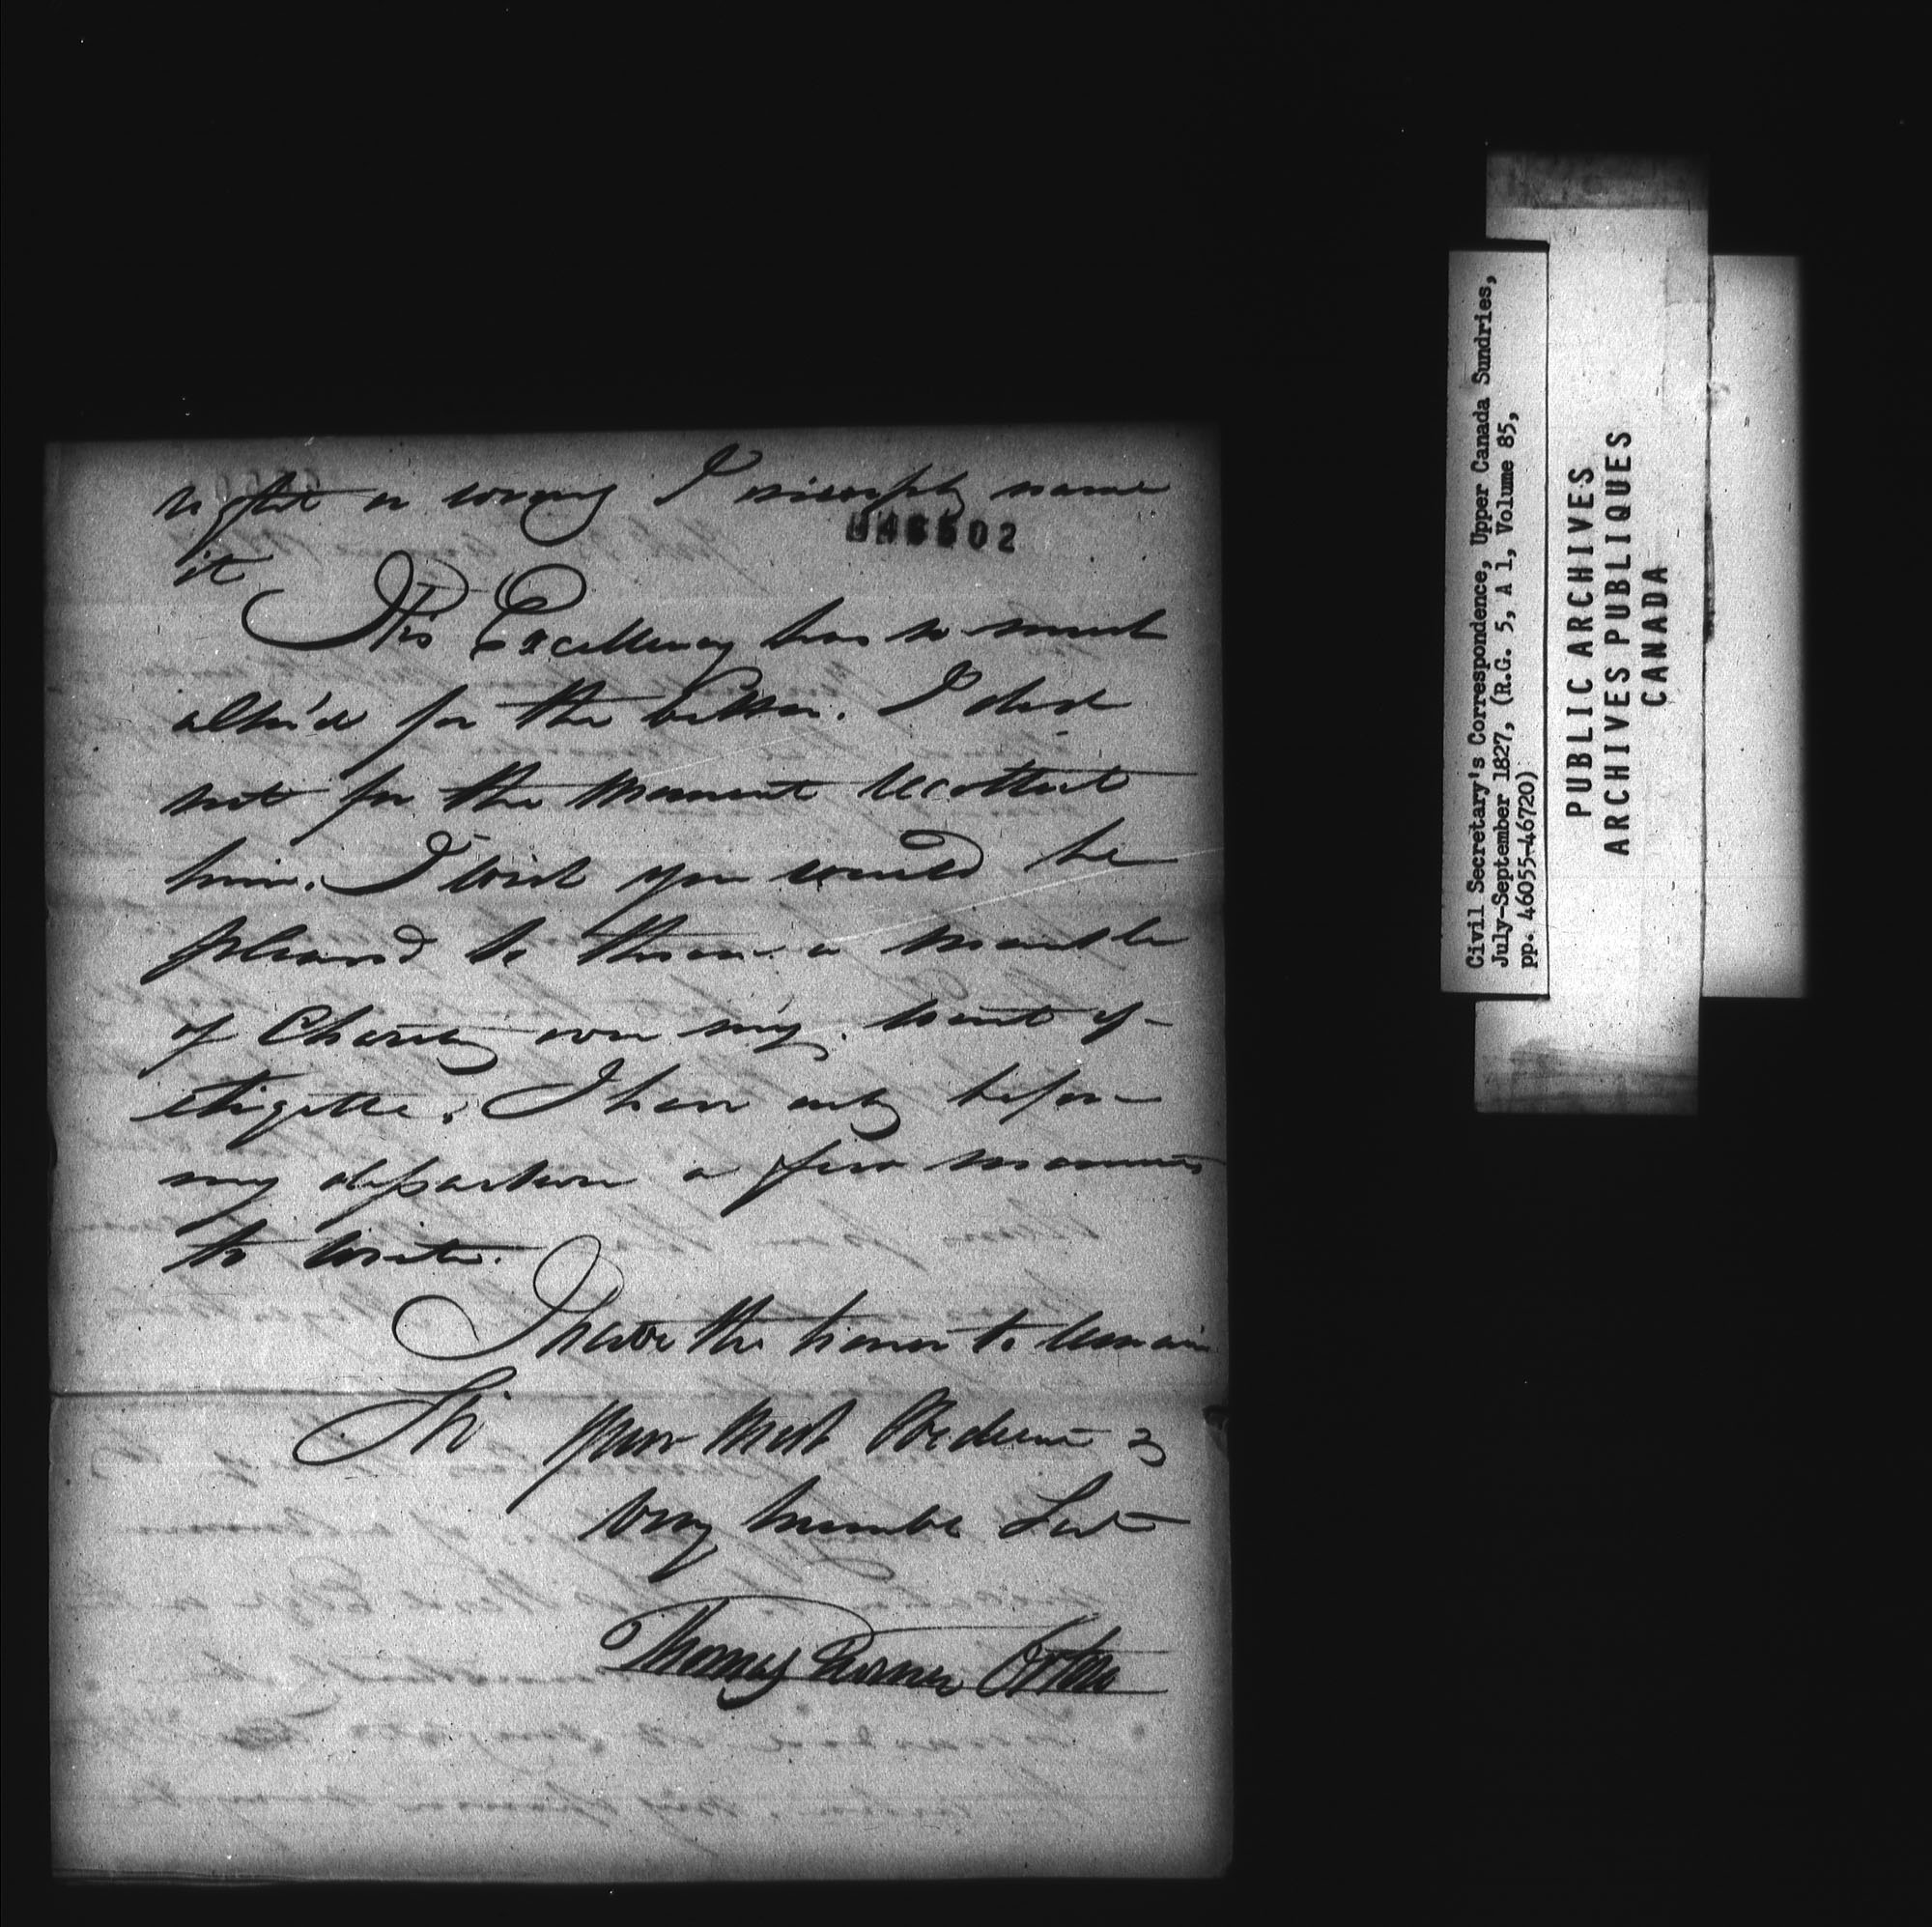 right or wrong I simply name
046502
it
His Excellency has so much
alter'd for the better. I did
not for the moment recollect
him. I wish you would be
pleas'd to throw a mantle
of Charity over my want of
etiquette. I have only before
my departure a few moments
to write.
I have the honor to remain
Sir your most Obedient &
very humble Servt
Thomas Turner Orton
Civil Secretary's Correspondence, Upper Canada Sundries,
July-September 1827, (R.G. 5, A 1, Volume 85,
pp. 46055-46720)
PUBLIC ARCHIVES
ARCHIVES PUBLIQUES
CANADA